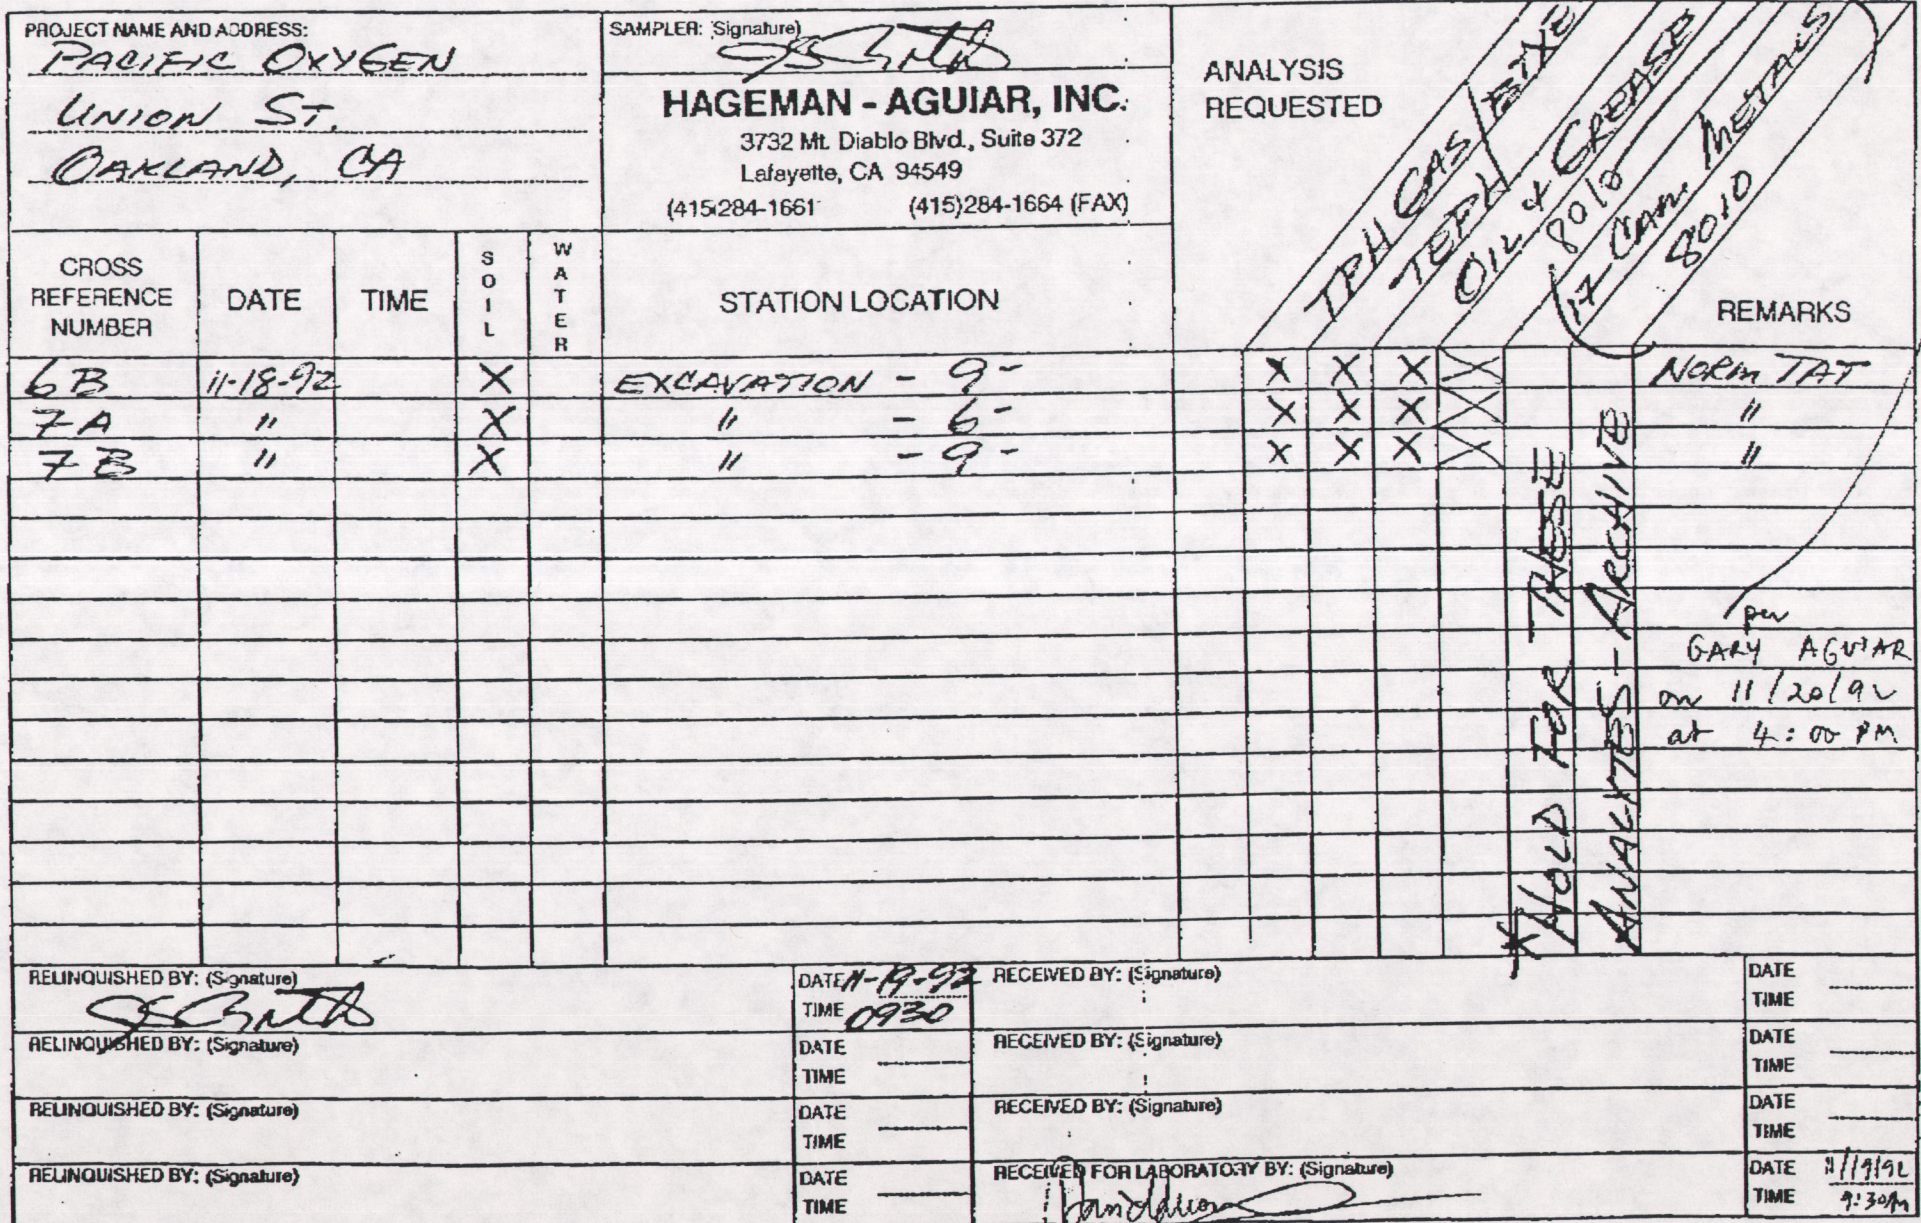 PROJECT NAME AND ADDRESS:
PACIFIC OXYGEN
UNION ST.
OAKLAND, CA
SAMPLER: (Signature)
HAGEMAN - AGUIAR, INC.
3732 Mt. Diablo Blvd., Suite 372
Lafayette, CA 94549
(415)284-1661 (415)284-1664 (FAX)
ANALYSIS
REQUESTED
TPH GAS/BTXE
TEPH
OIL & GREASE
8010
17-CAM. METALS
8010
CROSS REFERENCE NUMBER DATE TIME SOIL WATER STATION LOCATION REMARKS
6B 11-18-92 X EXCAVATION - 9- X X X X NORM TAT
7A " X " - 6- X X X X "
7B " X " - 9- X X X X "
* HOLD FOR THESE
ANALYTES - ARCHIVE
per
GARY AGUIAR
on 11/20/92
at 4:00 PM
RELINQUISHED BY: (Signature) DATE 11-19-92 RECEIVED BY: (Signature) DATE
TIME 0930 TIME
RELINQUISHED BY: (Signature) DATE RECEIVED BY: (Signature) DATE
TIME TIME
RELINQUISHED BY: (Signature) DATE RECEIVED BY: (Signature) DATE
TIME TIME
RELINQUISHED BY: (Signature) DATE RECEIVED FOR LABORATORY BY: (Signature) DATE 11/19/92
TIME TIME 9:30AM